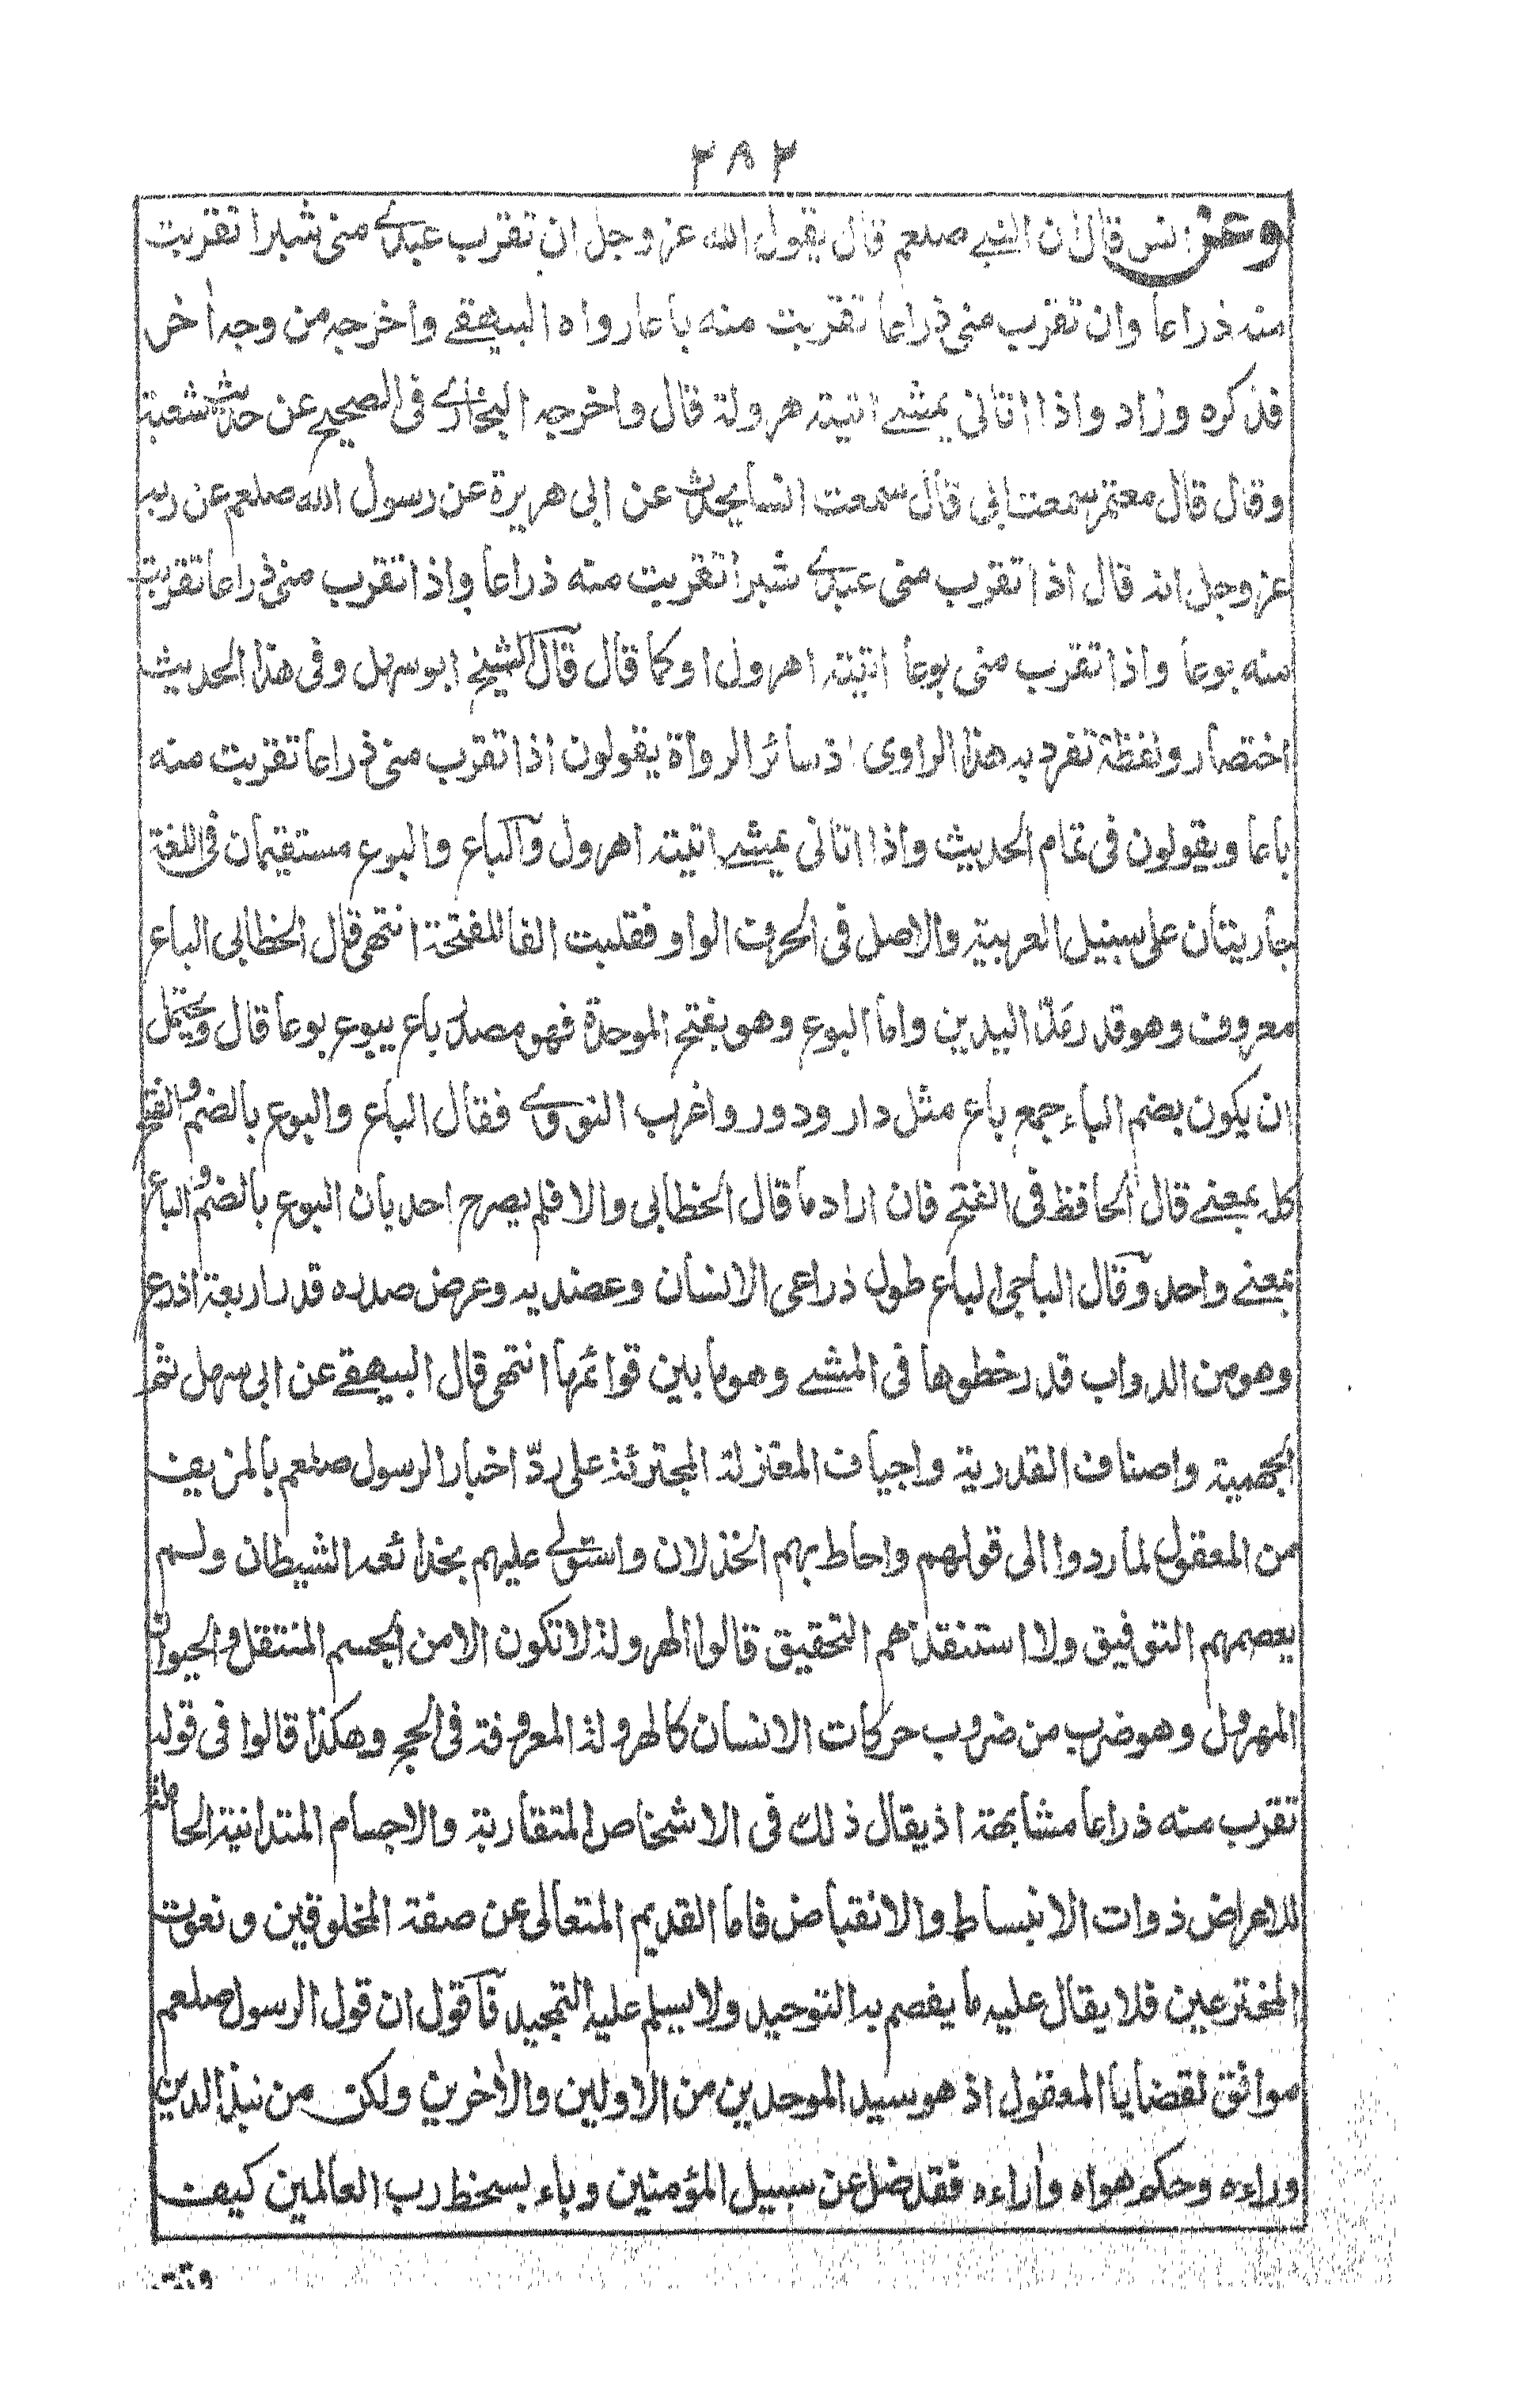 ٢٨٢
وعن انس قال ان النبي صلعم قال يقول الله عز وجل ان تقرب عبدي منى شبرا تقربت
منه ذراعا وان تقرب منى ذراعا تقربت منه باعا رواه البيهقي واخرجه من وجه اٰخر
فذكره وزاد واذا اتانى يمشي اتيته هرولة قال واخرجه البخاري فى الصحيح عن حديث شعبة
وقال قال معتمر سمعت ابى قال سمعت انسا يحدث عن ابى هريرة عن رسول الله صلعم عن ربه
عز وجل انه قال اذا تقرب منى عبدي شبرا تقربت منه ذراعا واذا تقرب منى ذراعا تقربت
منه بوعا واذا تقرب منى بوعا اتيته اهرول او كما قال قال الشيخ ابو سهل وفى هذا الحديث
اختصار ولفظة تفرد به هذا الراوى اذ سائر الرواة يقولون اذا تقرب منى ذراعا تقربت منه
باعا ويقولون فى تمام الحديث واذا اتانى يمشي اتيته اهرول والباع والبوع مستقيمان فى اللغة
جاريتان على سبيل العربية والاصل فى الحرف الواو فقلبت الفا للفتحة انتهى قال الخطابى الباع
معروف وهو قدر مدّ اليدين واما البوع وهو بفتح الموحدة فهو مصدر باع يبوع بوعا قال ويحتمل
ان يكون بضم الباء جمع باع مثل دار ودور واغرب النووي فقال الباع والبوع بالضم والفتح
كله بمعنى قال الحافظ فى الفتح فان اراد ما قال الخطابى والا فلم يصرح احد بان البوع بالضم والباع
بمعنى واحد وقال الباجى الباع طول ذراعى الانسان وعضديه وعرض صدره قدر اربعة اذرع
وهو من الدواب قدر خطوها فى المشي وهو ما بين قوائمها انتهى قال البيهقي عن ابى سهل ثم
الجهمية واصناف القدرية واجياف المعتزلة المجترئة على ردّ اخبار الرسول صلعم بالمزيف
من المعقول لما ردوا الى قولهم واحاط بهم الخذلان واستولى عليهم بخدائعه الشيطان ولم
يعصمهم التوفيق ولا استنقذهم التحقيق قالوا الهرولة لا تكون الا من الجسم المنتقل والحيوان
المهرول وهو ضرب من ضروب حركات الانسان كالهرولة المعروفة فى الحج وهكذا قالوا فى قوله
تقرب منه ذراعا مشابهة اذ يقال ذلك فى الاشخاص المتقاربة والاجسام المتدانية الحاملة
للاعراض ذوات الانبساط والانقباض فاما القديم المتعالى عن صفة المخلوقين ونعوت
المخترعين فلا يقال عليه ما يفصم به التوحيد ولا يسلم عليه التمجيد فاقول ان قول الرسول صلعم
موافق لقضايا المعقول اذ هو سيد الموحدين من الاولين والاٰخرين ولكن من نبذ الدين
وراءه وحكم هواه واٰراءه فقد ضل عن سبيل المؤمنين وباء بسخط رب العالمين كيف